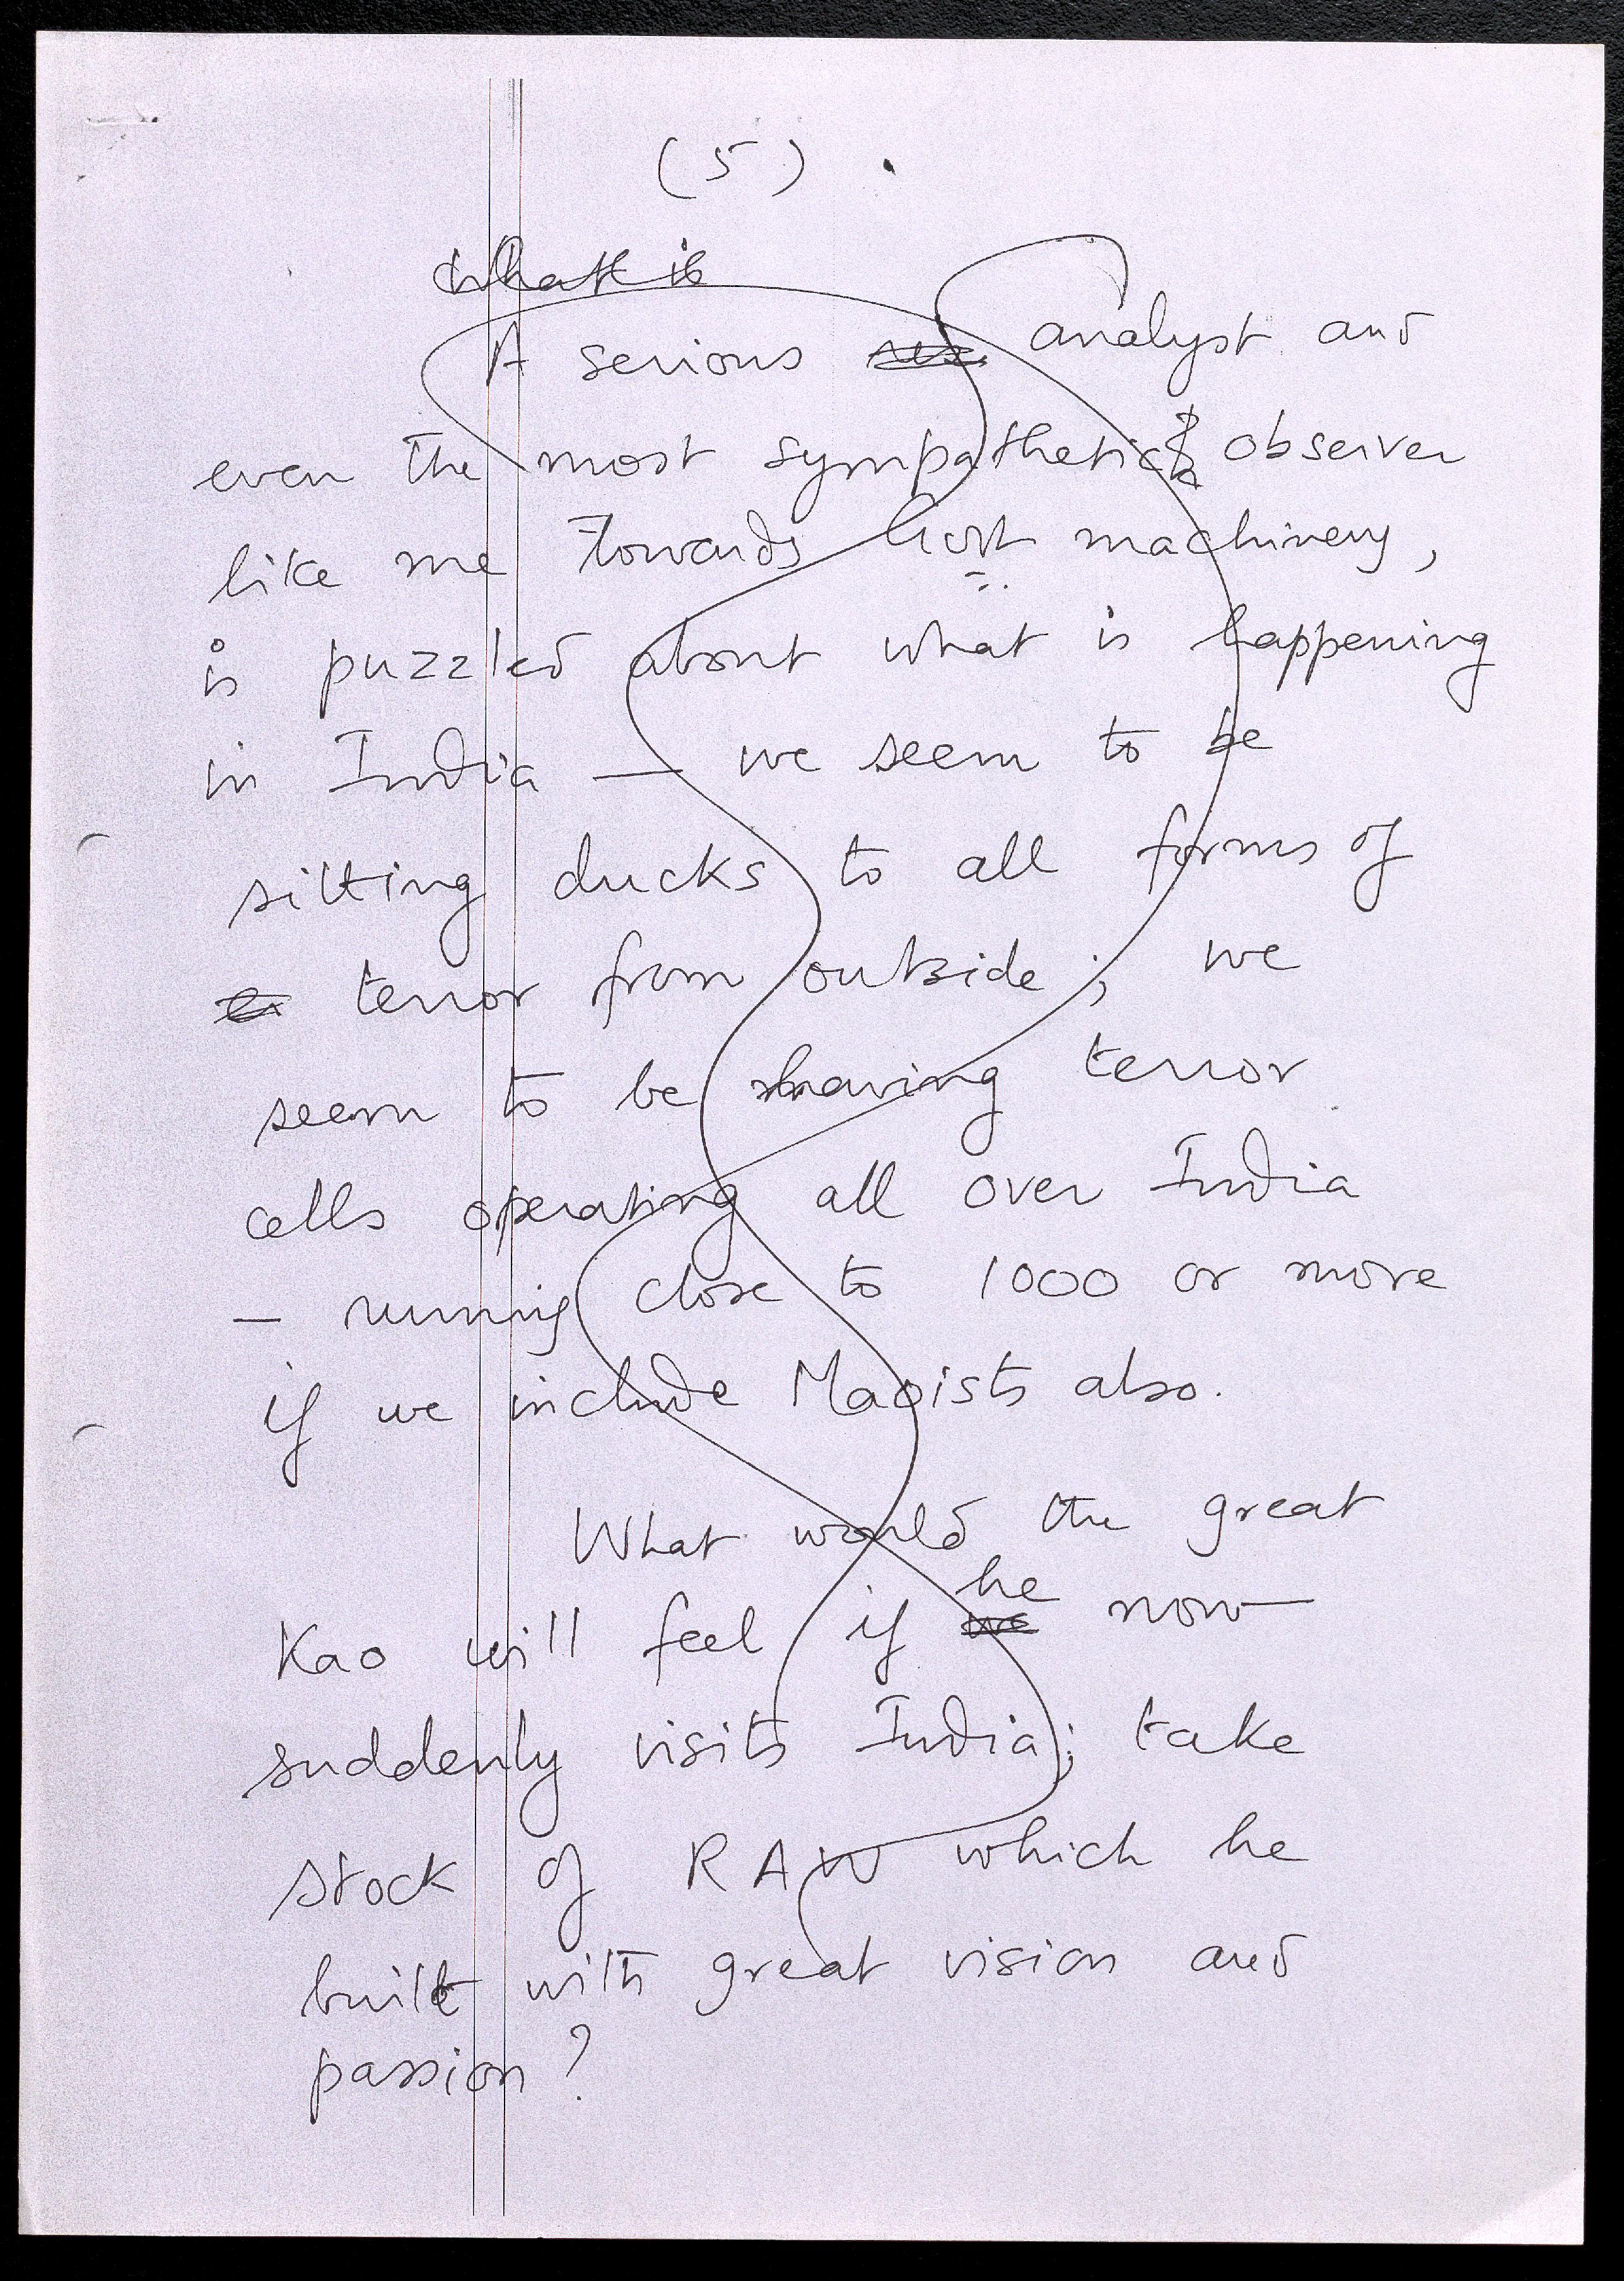 (5)
What is
A serious analyst and
even the most sympathetic observer
like me towards Govt machinery,
is puzzled about what is happening
in India — we seem to be
sitting ducks to all forms of
terror from outside; we
seem to be having terror
cells operating all over India
— running close to 1000 or more
if we include Maoists also.
What would the great
he
Kao will feel if we now
suddenly visits India; take
stock of RAW which he
built with great vision and
passion?